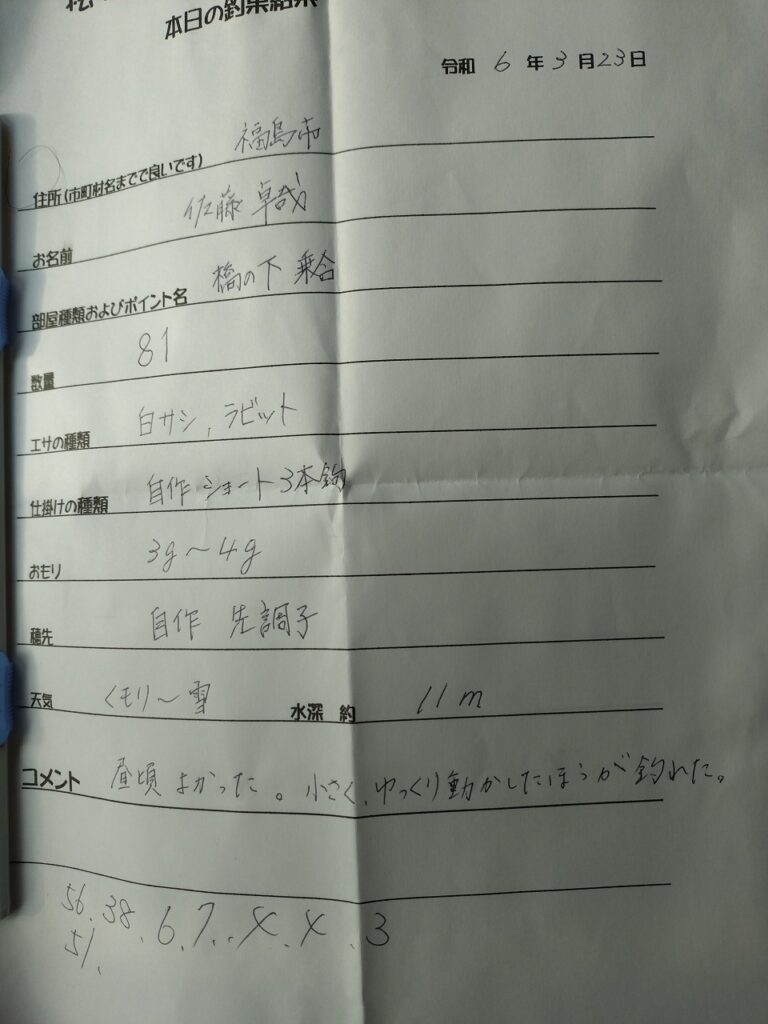 本日の釣果結果
令和 6 年 3 月 23 日
住所(市町村名までで良いです) 福島市
お名前 佐藤 卓哉
部屋種類およびポイント名 橋の下 乗合
数量 81
エサの種類 白サシ, ラビット
仕掛けの種類 自作 ショート 3本鈎
おもり 3g～4g
穂先 自作 先調子
天気 くもり～雪 水深 約 11m
コメント 昼頃よかった。小さく、ゆっくり動かしたほうが釣れた。
56. 38. 6. 7.
51.
3